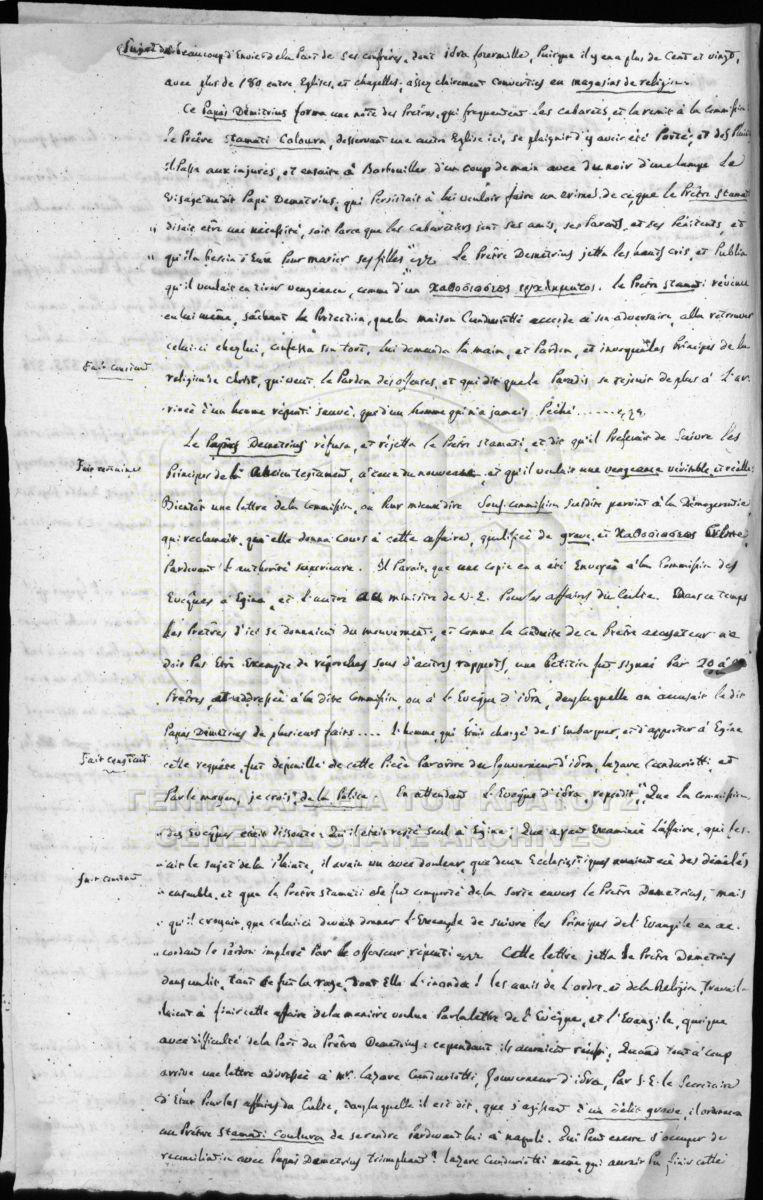 Sujet de beaucoup d'Envies de la Part de ses confrères, dont idra fourmille, Puisque il y en a plus de Cent et vingt,
avec plus de 180 entre Eglises, et chapelles, assez clairement converties en magasins de religion.
Ce Papàs Démétrius forma une note des Prêtres, qui frequentent les cabarets et la remit à la Commission
le Prêtre Stamati Coloura, desservant une autre Eglise ici, se plaignit d'y avoir été Porté, et des Plaintes
il Passa aux injures, et ensuite à Barbouiller d'un coup de main avec du noir d'une lampe le
visage du dit Papà Demetrius, qui Persistait à lui vouloir faire un crime de ce que le Prêtre Stamati
" disait etre une nécessité, soit Parce que les cabaretiers sont ses amis, ses Parents, et ses Pénitents, et
" qu'il a besoin d'eux Pour marier ses filles" Le Prêtre Demétrius jetta les hauts cris, et Publia
qu'il voulait en tirer vengeance, comme d'un καθοσιόσεος εγκλήματος. Le Prêtre Stamati revenu
en lui même, sachant la Protection, que la maison Cunduriotti accorde à son adversaire, alla retrouver
celui-ci chez lui, confessa son tort, lui demanda la main, et Pardon, et invoqua les Principes de la
Fait constant
religion de Christ, qui veut le Pardon des offenses, et qui dit que le Paradis se rejouit de plus à l'ar-
rivée d'un homme répenti sauvé, que d'un homme qui n'a jamais Péché ......
Le Papàs Demetrius réfusa, et réjetta le Prêtre Stamati, et dit qu'il Préferait de Suivre les
Fait
Principes de l'Ancien testament, à ceux du nouveau et qu'il voulait une vengeance véritable, et réelle.
Bientôt une lettre de la Commission, ou Pour mieux dire Sous-commission susdite parvint à la Démogerontie,
qui reclamait, qu'elle donna cours à cette affaire, qualifiée de grave, et καθοσιόσεος
Pardevant l'authorité supérieure. Il Parait, que une copie en a été Envoyée à la Commission des
Evêques à Egina, et l'autre au ministre de S. E. Pour les affaires du Culte. Dans ce temps
les Prêtres d'ici se donnaient du mouvement, et comme la Conduite de ce Prêtre accusateur ne
doit Pas être Exempte de réproches sous d'autres rapports, une Pétition fut signée Par 20 à
Prêtres, et addressée à la dite Commission, ou à l'Evêque d'idra, dans laquelle on accusait le dit
Papàs Démétrius de plusieurs faits .... l'homme, qui était chargé de s'Embarquer, et d'apporter à Egine
Fait constant
cette requête, fut dépouillé de cette Pièce Par ordre du Gouverneur d'idra, Lazare Cunduriotti, et
Par le moyen, je crois, de la Police. En attendant l'Evêque d'idra repondit, "Que la Commission
" des Evêques était dissoute: Qu'il était resté seul à Egine; Que ayant Examiné l'affaire, qui fes-
" ait le sujet de la Plainte, il avait vu avec douleur, que deux Ecclesiastiques avaient eu des démélés
Fait constant
" ensemble, et que le Prêtre Stamati se fut comporté de la sorte envers le Prêtre Demetrius, mais
" qu'il croyait, que celui-ci devait donner l'Exemple de suivre les Principes de l'Evangile en ac-
" cordant le Pardon imploré Par le offenseur répenti Cette lettre jetta le Prêtre Demetrius
dans un lit, tant fut la rage, dont Elle l'inonda! les amis de l'ordre, et de la Religion travail-
laient à finir cette affaire de la manière voulue Par la lettre de l'Evêque, et l'Evangile, quoique
avec difficulté de la Part du Prêtre Demetrius: cependant ils auraient réussi, Quand tout à coup
arriva une lettre adressée à Mr. Lazare Cunduriotti, Gouverneur d'idra, Par S.E. le Secretaire
d'Etat Pour les affaires du Culte, dans laquelle il est dit, que s'agissant d'un délit grave, il ordonne
au Prêtre Stamati Couloura de se rendre Pardevant lui à napoli. Qui Peut encore s'occuper de
reconciliation avec Papàs Demetrius triomphant? Lazare Cunduriotti même, qui aurait Pu finir cette
ΓΕΝΙΚΑ ΑΡΧΕΙΑ ΤΟΥ ΚΡΑΤΟΥΣ
GENERAL STATE ARCHIVES